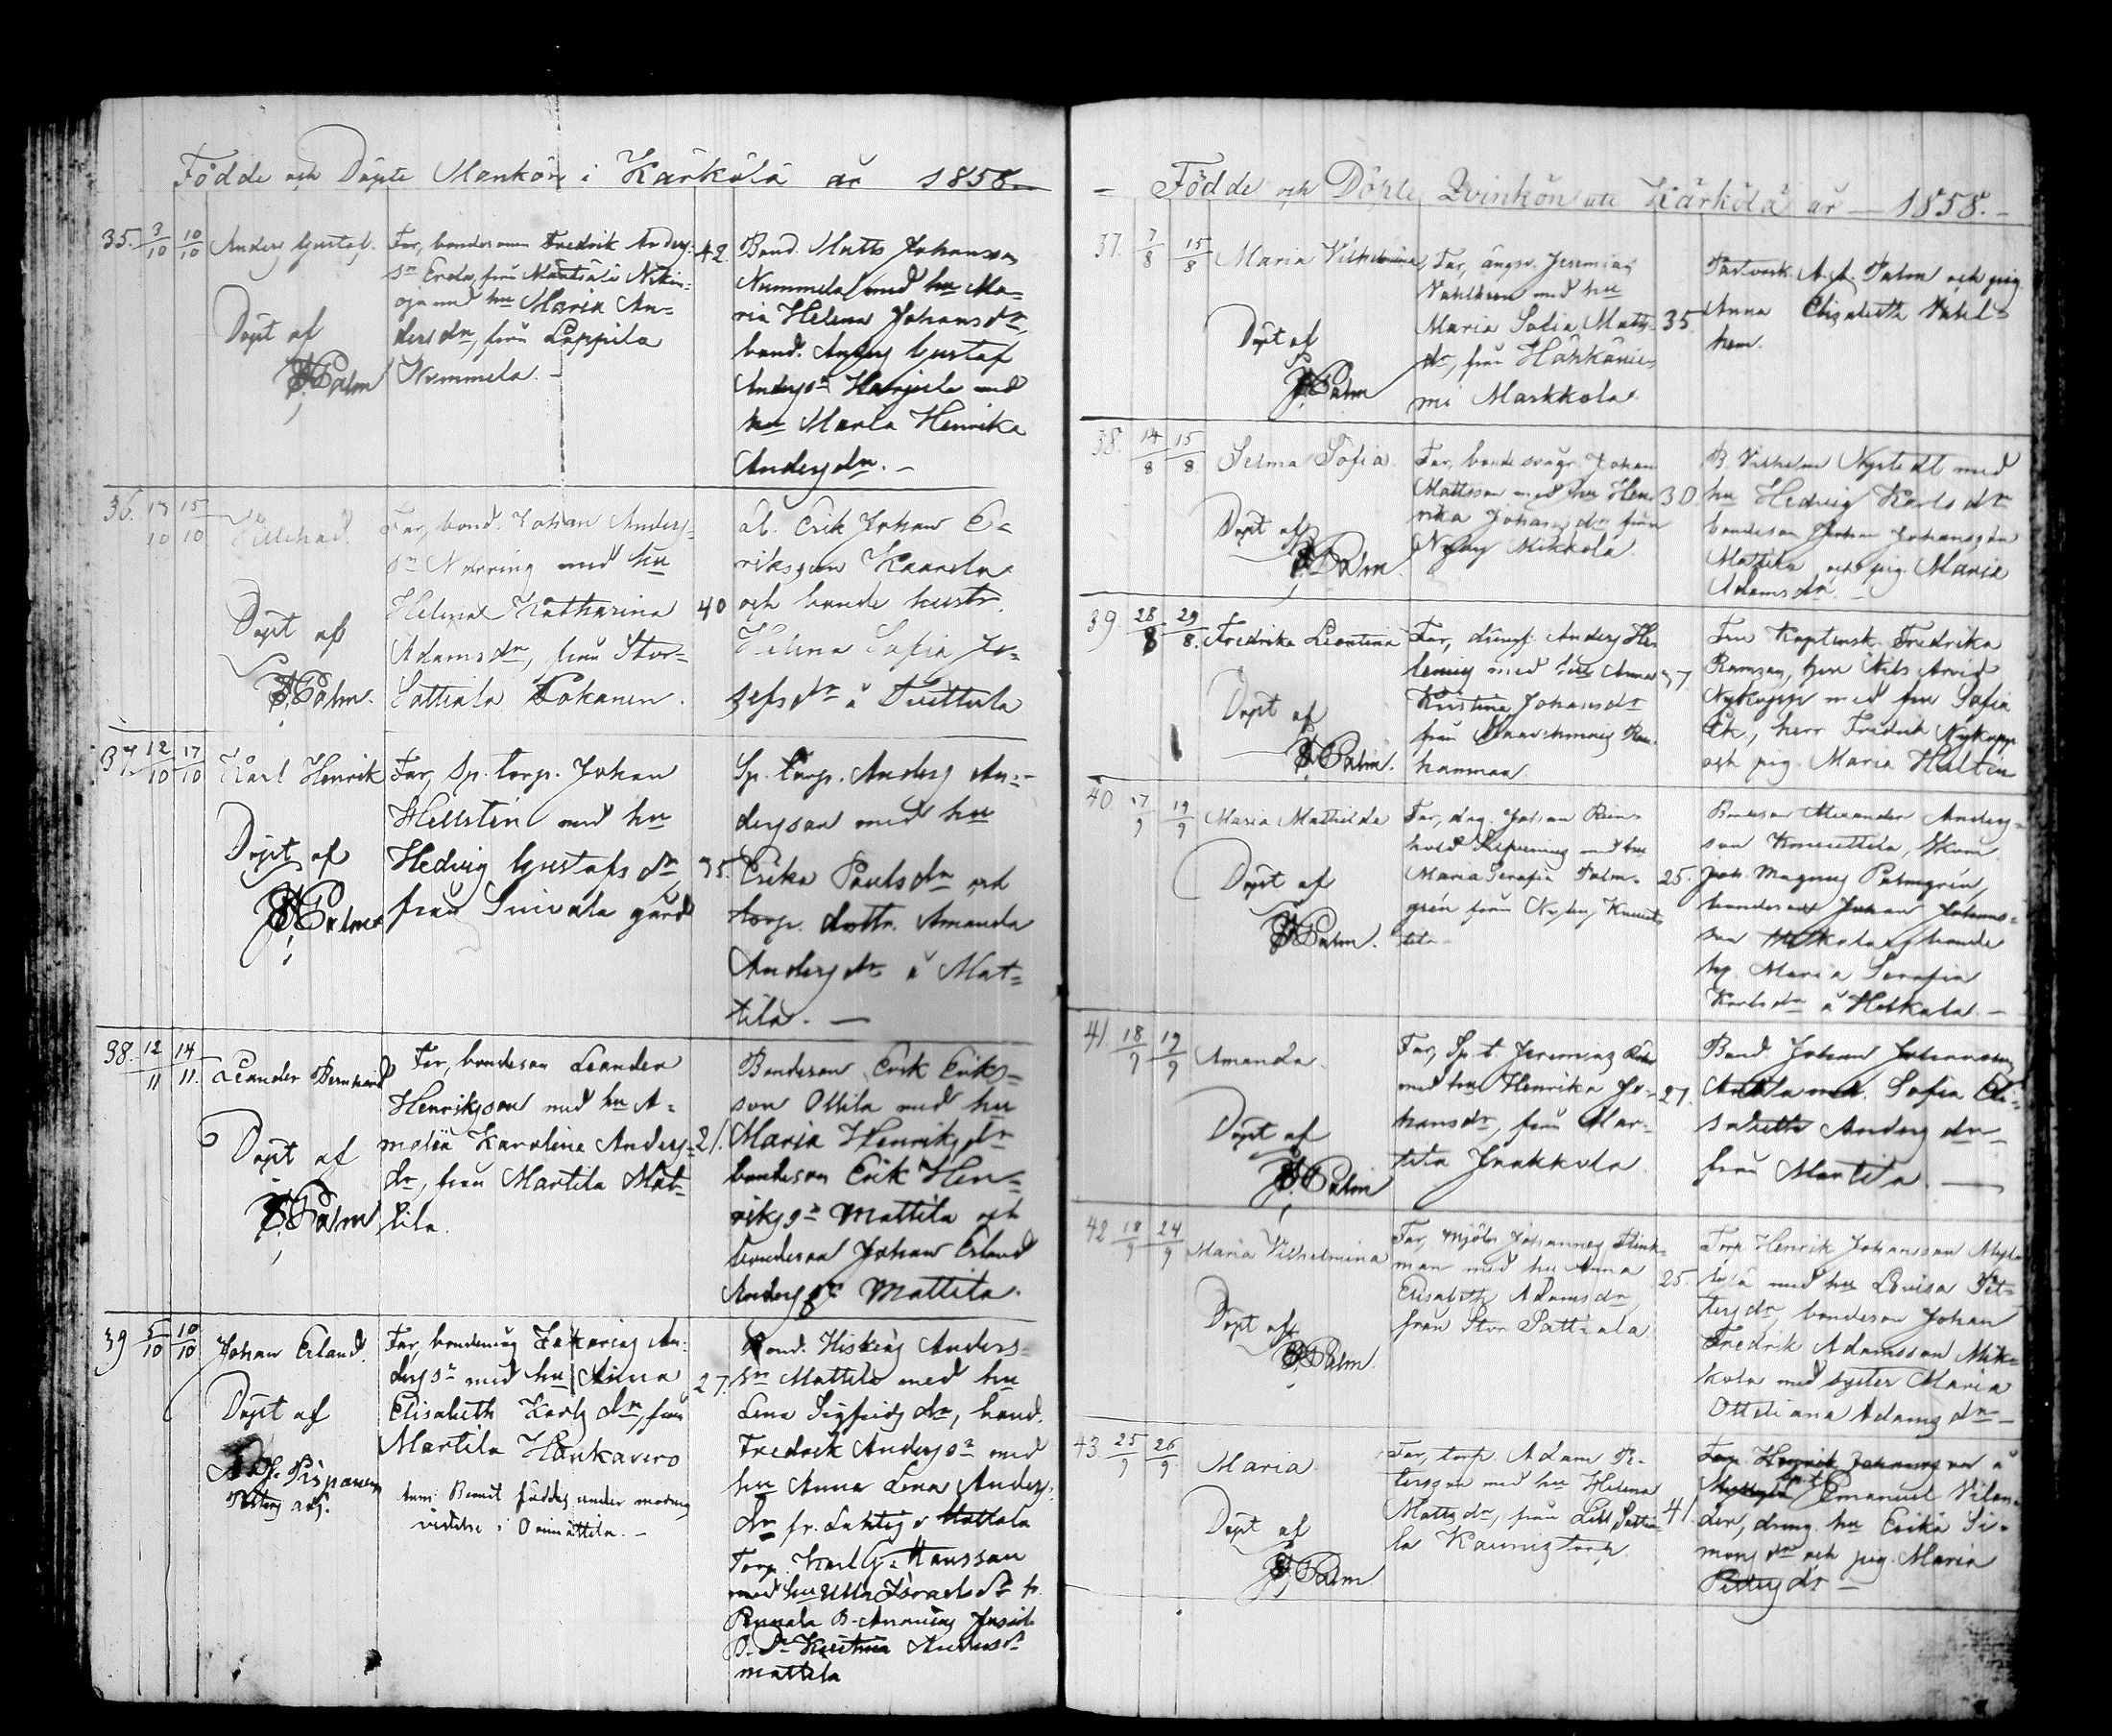 Födde och Döpte Mankön i Kärkölä år 1858.
35. 3/10 10/10 Anders Gustaf.
Döpt af
Palm
Far, bondesonen Fredrik Anders-
sn Erola, från Mäntsälä Nikin-
oja med hu Maria An-
dersdr, från Lappila
Nummela.
42.
Bond. Matts Johansson
Nummela med hu Ma-
ria Helena Johansdr,
bond. Anders Gustaf
Anderssn med
hu Maria Henrika
Andersdr.
36. 13/10 15/10 Villehad.
Döpt af
Palm.
Far, bond. Johan Anders-
sn med hu
Helena Katharina
Adamsdr, från Stor-
Sattiala Pokanen.
40
Erik Johan E-
riksson
och bonde hustr.
Helena Sofia Jo-
sefsdr å
37. 12/10 17/10 Karl Henrik
Döpt af
Palm
Far, Sp. torp. Johan
Hellsten med hu
Hedvig Gustafsdr
från gård
35.
Sp. torp. Anders An-
dersson med hu
Erika Paulsdr och
torp. dottr. Amanda
Andersdr å Mat-
tila.
38. 12/11 14/11. Leander Bernhard
Döpt af
Palm
Far, bondeson Leander
Henriksson med hu A-
malia Karolina Anders-
dr, från Martila Mat-
tila.
21.
Bondeson Erik Eriks-
son Ollila med hu
Maria Henriksdr
bondeson Erik Hen-
rikssn Mattila och
bondeson Johan Erland
Anderssn Mattila.
39 5/10 10/10 Johan Erland.
Döpt af
Pispanen
Far, bondemåg Zakarias An-
derssn med hu Anna
Elisabeth Karlsdr, från
Martila Haukavero
Anm: Barnet föddes under modrens
vistelse i Orimattila.
27.
Bond. Hiskias Anders-
sn Mattila med hu
Lena Sigfridsdr, bond.
Fredrik Anderssn med
hu Anna Lena Anders-
dr fr. Lahtis Mattala
Torp. Karl G. Hansson
med hu Ulla Israelsdr fr.
Kristina Andersdr
Mattila
Födde och Döpte Qvinkön uti Kärkölä år 1858.
37. 7/8 15/8 Maria Vilhelmina,
Döpt af
Palm
Far, Jeremias
med hu
Maria Sofia Matts-
dr, från Hähkänie-
mi Markkola.
35.
A. A. Palm och pig.
Anna Elisabeth
38. 14/8 15/8 Selma Sofia.
Döpt af
Palm.
Far, bondesvågr. Johan
Mattsson med hu Hen-
rika Johansdr från
Nyby Mikkola.
30.
B. Vilhelm Nystedt med
hu Hedvig Karlsdr
bondeson Johan Johansson
Mattila och pig. Maria
Adamsdr.
39. 28/8 29/8. Fredrika Leontina
Döpt af
Palm.
Far, Anders Hel-
lenius med hu Anna
Kristina Johansdr
från
37.
Fru Kaptensk. Fredrika
Ramsay, herr Nils Arvid
Nykopp med fru Sofia
Ek, herr Fredrik Nykopp
och pig. Maria
40. 17/9 19/9 Maria Mathilda
Döpt af
Palm.
Far, Johan Rein-
hold med hu
Maria Serafia Palm-
grén från Nyby,
25.
Bondeson Alexander Anders-
son
Joh. Magnus Palmgrén,
bondeson Johan Johans-
son Mikkola, bonde
Maria Serafia
Karlsdr å
41. 18/9 19/9 Amanda.
Döpt af
Palm
Far, Sp. t. Jeremias
med hu Henrika Jo-
hansdr, från Mar-
tila Jaakkola.
27.
Bond. Johan Johansson
Anttila med Sofia Eli-
sabetha Andersdr
från Martila.
42. 18/9 24/9 Maria Vilhelmina
Döpt af
Palm.
Far, mjöln. Johannes
man med hu Anna
Elisabeth Adamsdr,
från Stor Sattiala
25.
Torp. Henrik Johansson
med hu Lovisa Pet-
tersdr, bondeson Johan
Fredrik Adamsson Mik-
kola med syster Maria
Ottiliana Adamsdr
43. 25/9 26/9 Maria.
Döpt af
Palm.
Far, torp. Adam Pe-
tersson med hu Helena
Mattsdr, från Lill Sattia-
la
41.
Torp. Henrik Johansson å
Emanuel Vilen-
der, dreng. hu Erika Si-
monsdr och pig. Maria